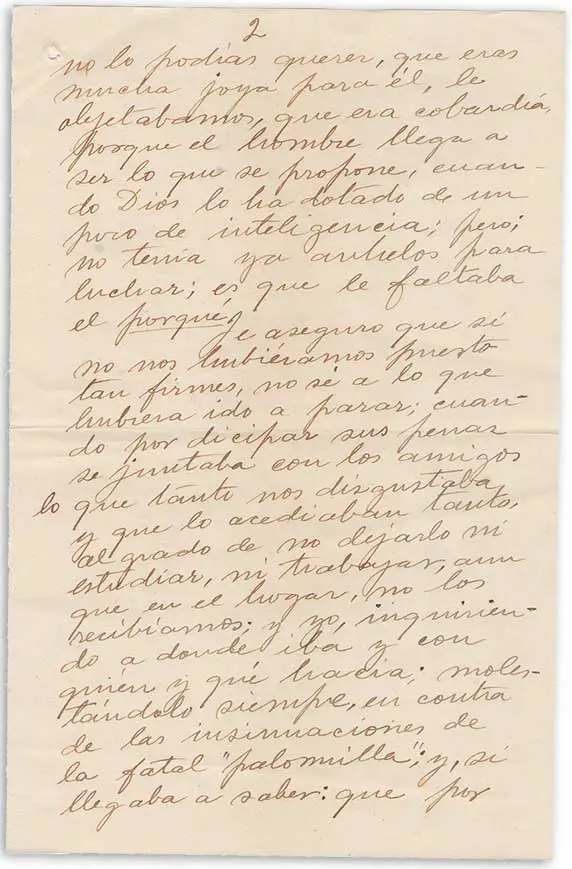 2
no lo podías querer, que eras
mucha joya para él, le
objetabamos, que era cobardía,
porque el hombre llega a
ser lo que se propone, cuan-
do Dios lo ha dotado de un
poco de inteligencia; pero;
no tenía ya anhelos para
luchar; es que le faltaba
el porqué!
Te aseguro que si
no nos hubiéramos puesto
tan firmes, no sé a lo que
hubiera ido a parar; cuan-
do por dicipar sus penas
se juntaba con los amigos
lo que tanto nos disgustaba
y que lo acediaban tanto,
al grado de no dejarlo ni
estudiar, ni trabajar, aun
que en el hogar, no los
recibíamos; y yo, inquirien-
do a donde iba y con
quién y qué hacía; moles-
tándolo siempre, en contra
de las insinuaciones de
la fatal "palomilla"; y, si
llegaba a saber: que por